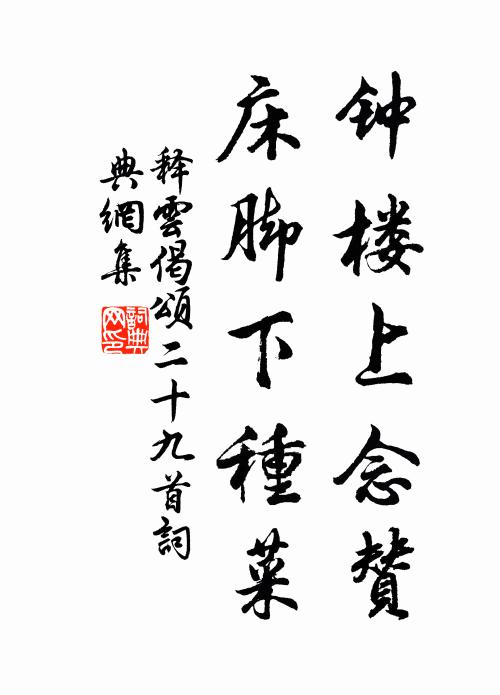 钟楼上念赞
床脚下種菜
释雲偈頌二十九首詞
典網集
詞典网印